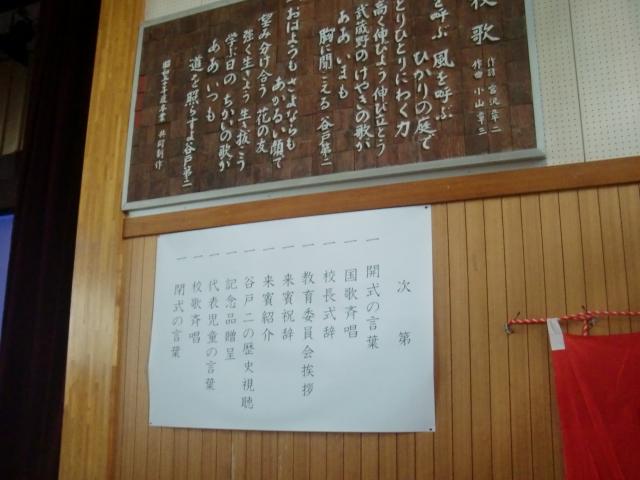 校歌
作詩 宮沢章二
作曲 小山章三
を呼ぶ 風を呼ぶ
ひかりの庭で
とりひとりにわく力
高く伸びよう 伸び立とう
武蔵野のけやきの歌が
ああ いまも
胸に聞こえる 谷戸第二
おはようも さよならも
あかるい顔で
望み分け合う 花の友
強く生きよう 生き抜こう
学ぶ日の ちかいの歌が
ああ いつも
道を照らすよ 谷戸第二
次第
一 開式の言葉
一 国歌斉唱
一 校長式辞
一 教育委員会挨拶
一 来賓祝辞
一 来賓紹介
一 谷戸二の歴史視聴
一 記念品贈呈
一 代表児童の言葉
一 校歌斉唱
一 閉式の言葉